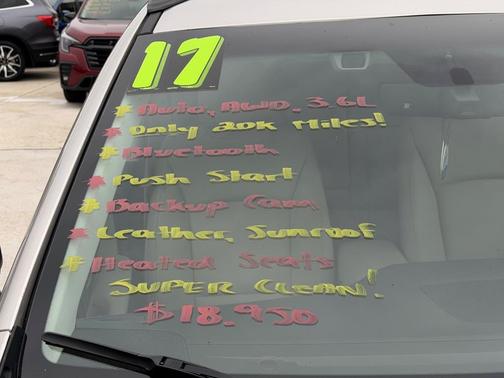 17
* Auto, AWD. 3.6L
* Only 20K Miles!
* Bluetooth
* Push Start
* Backup Cam
* Leather, Sunroof
* Heated Seats
SUPER CLEAN!
$18,950